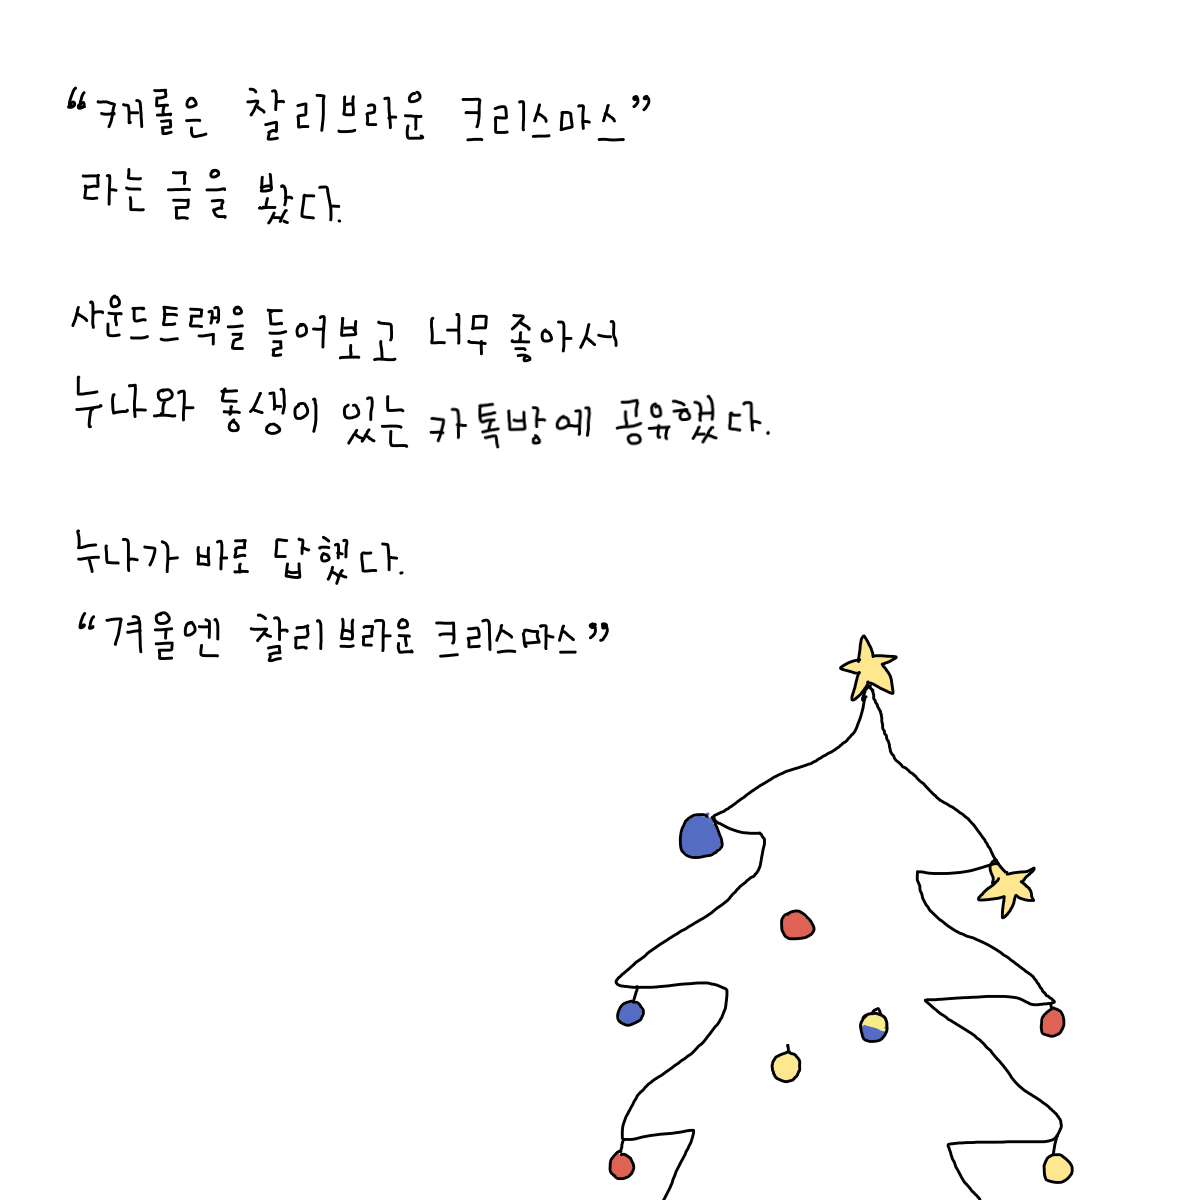 “캐롤은 찰리브라운 크리스마스”
라는 글을 봤다.
사운드트랙을 들어보고 너무 좋아서
누나와 동생이 있는 카톡방에 공유했다.
누나가 바로 답했다.
“겨울엔 찰리브라운 크리스마스”